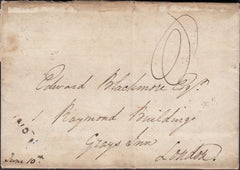 Edward Blackmore Esqr.
1 Raymond Buildings
Grays Inn
London
June 10th